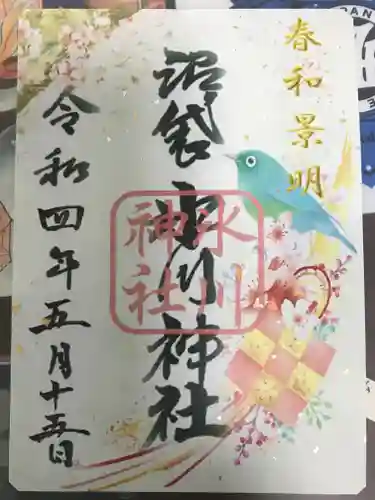 春和景明
沼袋氷川神社
氷川
神社
令和四年五月十五日
PAN